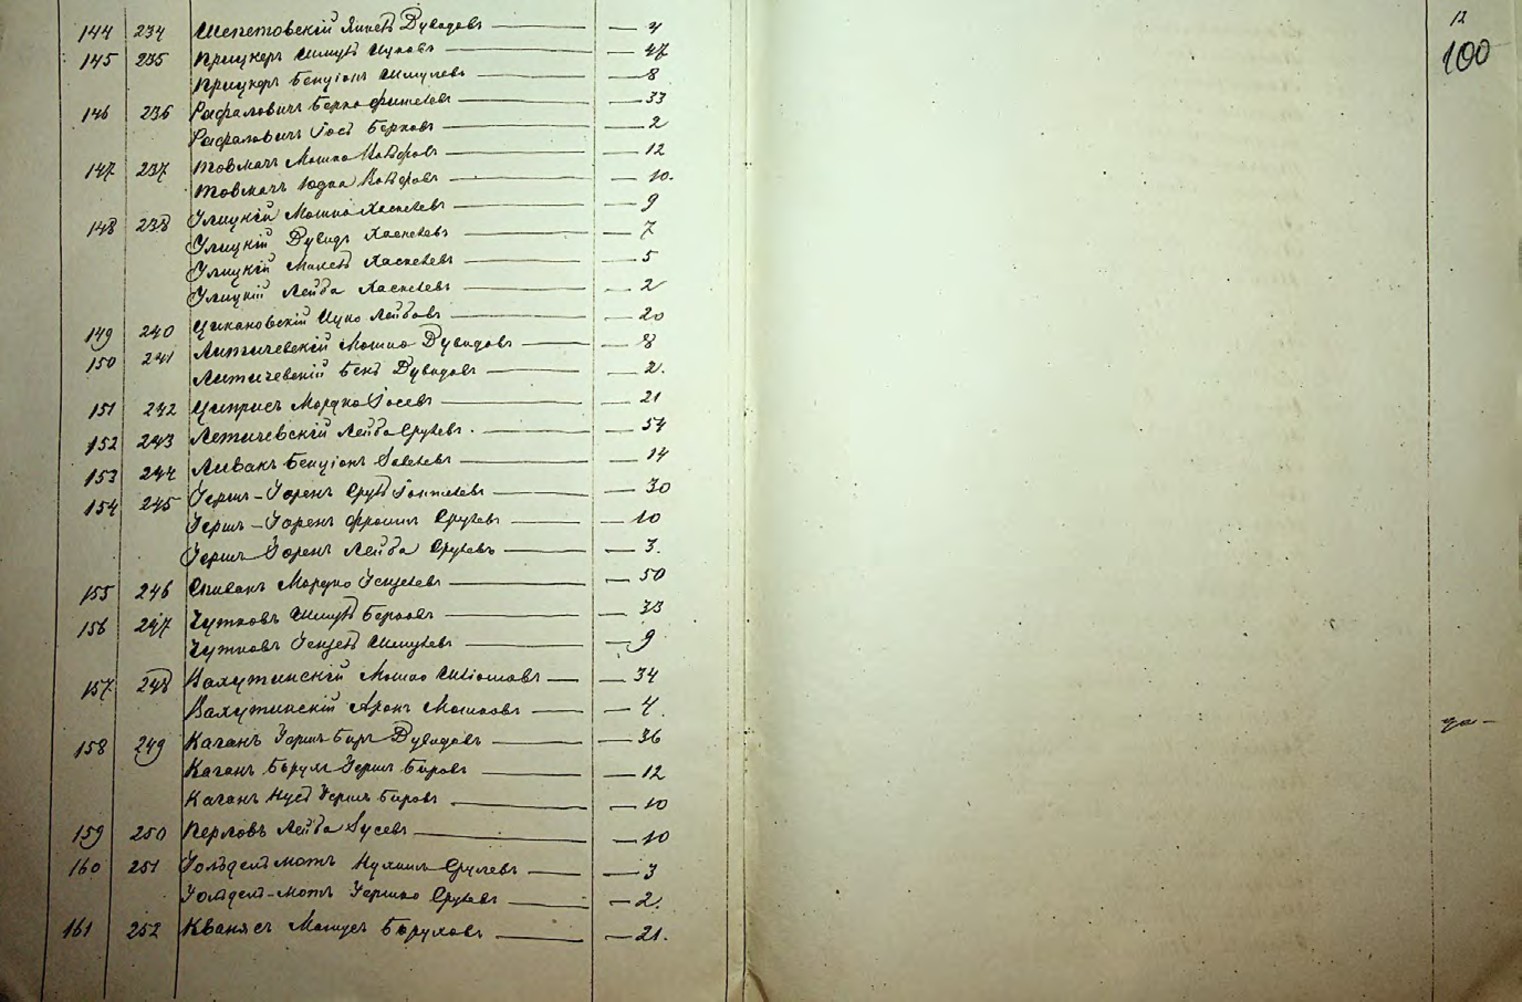 144 234 Шепетовскій Янкель Дувидовъ — 4
145 235 Прицкеръ Шмуль Ицковъ — 47
Прицкеръ Бенціонъ Шмулевъ — 8
146 236 Рафаловичъ Берко Фишелевъ — 33
Рафаловичъ Іось Берковъ — 2
147 237 Товмачъ Мошко — 12
Товмачъ Юдка — 10.
148 238 Улицкій Мошко Хаскелевъ — 9
Улицкій Дувидъ Хаскелевъ — 7
Улицкій Хаскелевъ — 5
Улицкій Лейба Хаскелевъ — 2
149 240 Цикановскій Ицко Лейбовъ — 20
150 241 Литичевскій Мошко Дувидовъ — 8
Литичевскій Бенъ Дувидовъ — 2.
151 242 Циприсъ Мордко Іосевъ — 21
152 243 Летичевскій Лейба Срулевъ — 54
153 244 Ливакъ Бенціонъ — 14
154 245 Герш-Горенъ Сруль — 30
Герш-Горенъ Фроимъ Срулевъ — 10
Герш Горенъ Лейба Срулевъ — 3.
155 246 Спивакъ Мордко — 50
156 247 Чутковъ Шмуль Берковъ — 33
Чутковъ Шмулевъ — 9
157 248 Вахутинскій Мошко — 34
Вахутинскій Аронъ Мошковъ — 4.
158 249 Каганъ Герш Беръ Дувидовъ — 36
Каганъ Борухъ Герш Беровъ — 12
Каганъ Нусь Герш Беровъ — 10
159 250 Перловъ Лейба Зусевъ — 10
160 251 Нухимъ Срулевъ — 3
Гершко Срулевъ — 2.
161 252 Кванясъ Боруховъ — 21.
12
100